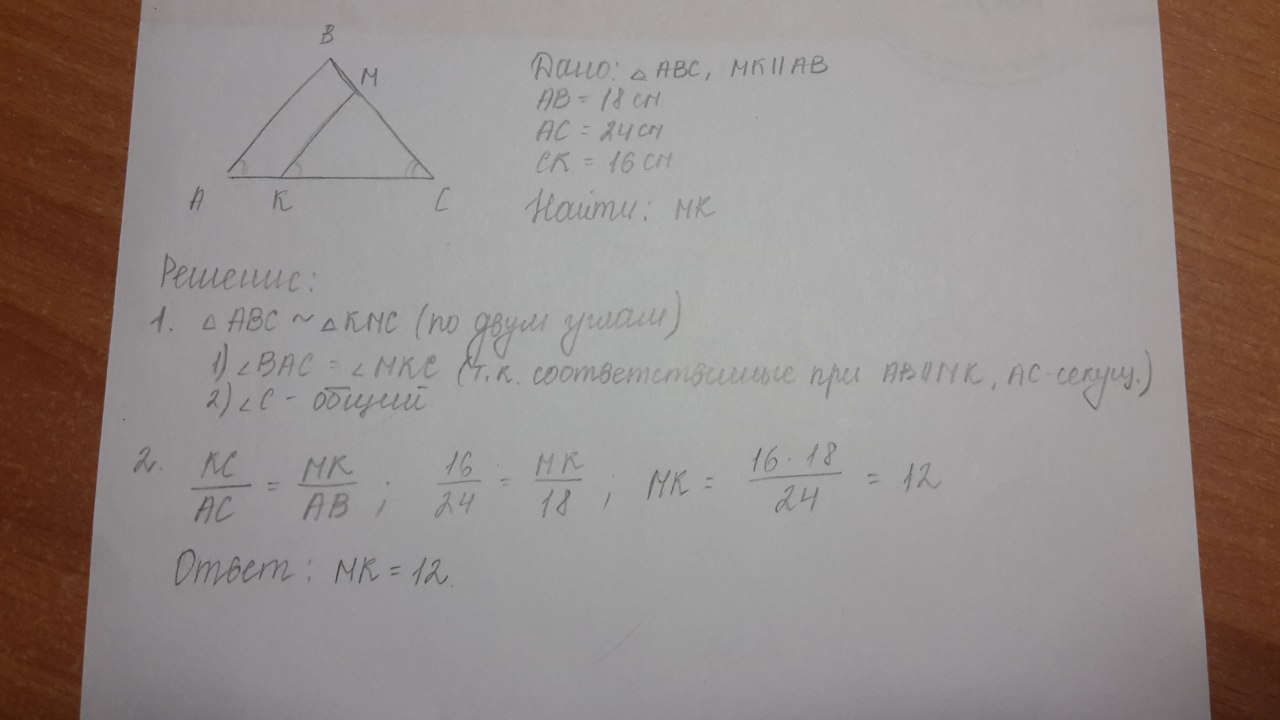 B
M
A
K
C
Дано: △ ABC, MK || AB
AB = 18 см
AC = 24 см
CK = 16 см
Найти: MK
Решение:
1. △ ABC ~ △ KMC (по двум углам)
1) ∠BAC = ∠MKC (т.к. соответственные при AB || MK, AC - секущ.)
2) ∠C - общий
2. KC/AC = MK/AB ; 16/24 = MK/18 ; MK = 16 · 18/24 = 12
Ответ: MK = 12.